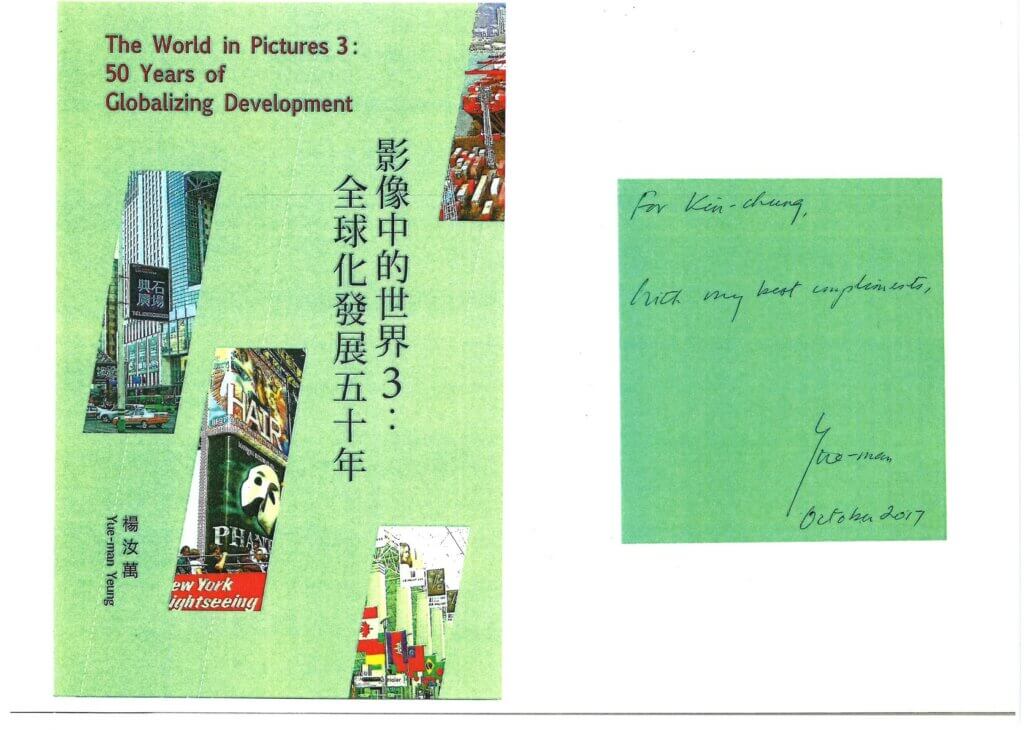 The World in Pictures 3:
50 Years of
Globalizing Development
影像中的世界3：
全球化發展五十年
興石
廣場
HAIR
PHANT
ew York
ightseeing
楊汝萬
Yue-man Yeung
For Kin-chung,
With my best compliments,
Yue-man
October 2017